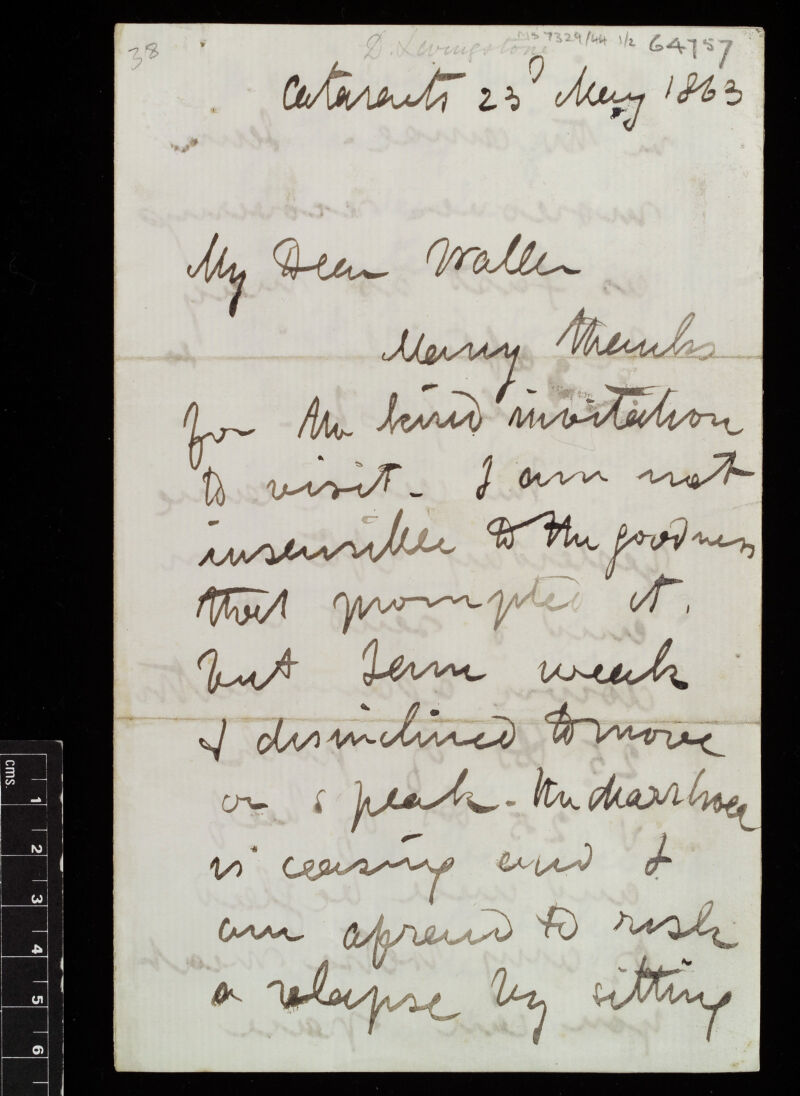 38
D. Livingstone
MS 7329/44 1/2
64757
Cataracts 23d May 1863
My Dear Waller
Many thanks
for the kind invitation
to visit - I am not
insensible to the goodness
that prompted it.
but I am weak
& disinclined to move
or speak - the diarrhoea
is ceasing and I
am afraid to risk
a relapse by sitting
cms.
1
2
3
4
5
6